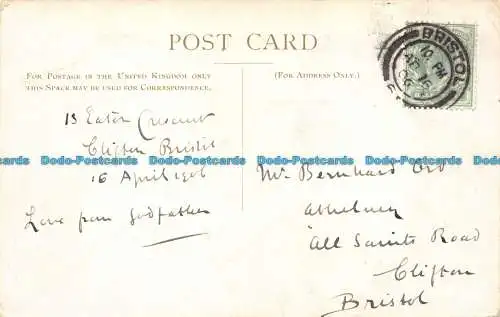 POST CARD
FOR POSTAGE IN THE UNITED KINGDOM ONLY
THIS SPACE MAY BE USED FOR CORRESPONDENCE.
(FOR ADDRESS ONLY.)
BRISTOL
10. PM
AP 16
06
13 Eaton Crescent
Clifton Bristol
16 April 1906
Love from Godfather
Mr Bernhard Ord
Athelney
All Saints Road
Clifton
Bristol
Dodo-Postcards Dodo-Postcards Dodo-Postcards Dodo-Postcards Dodo-Postcards